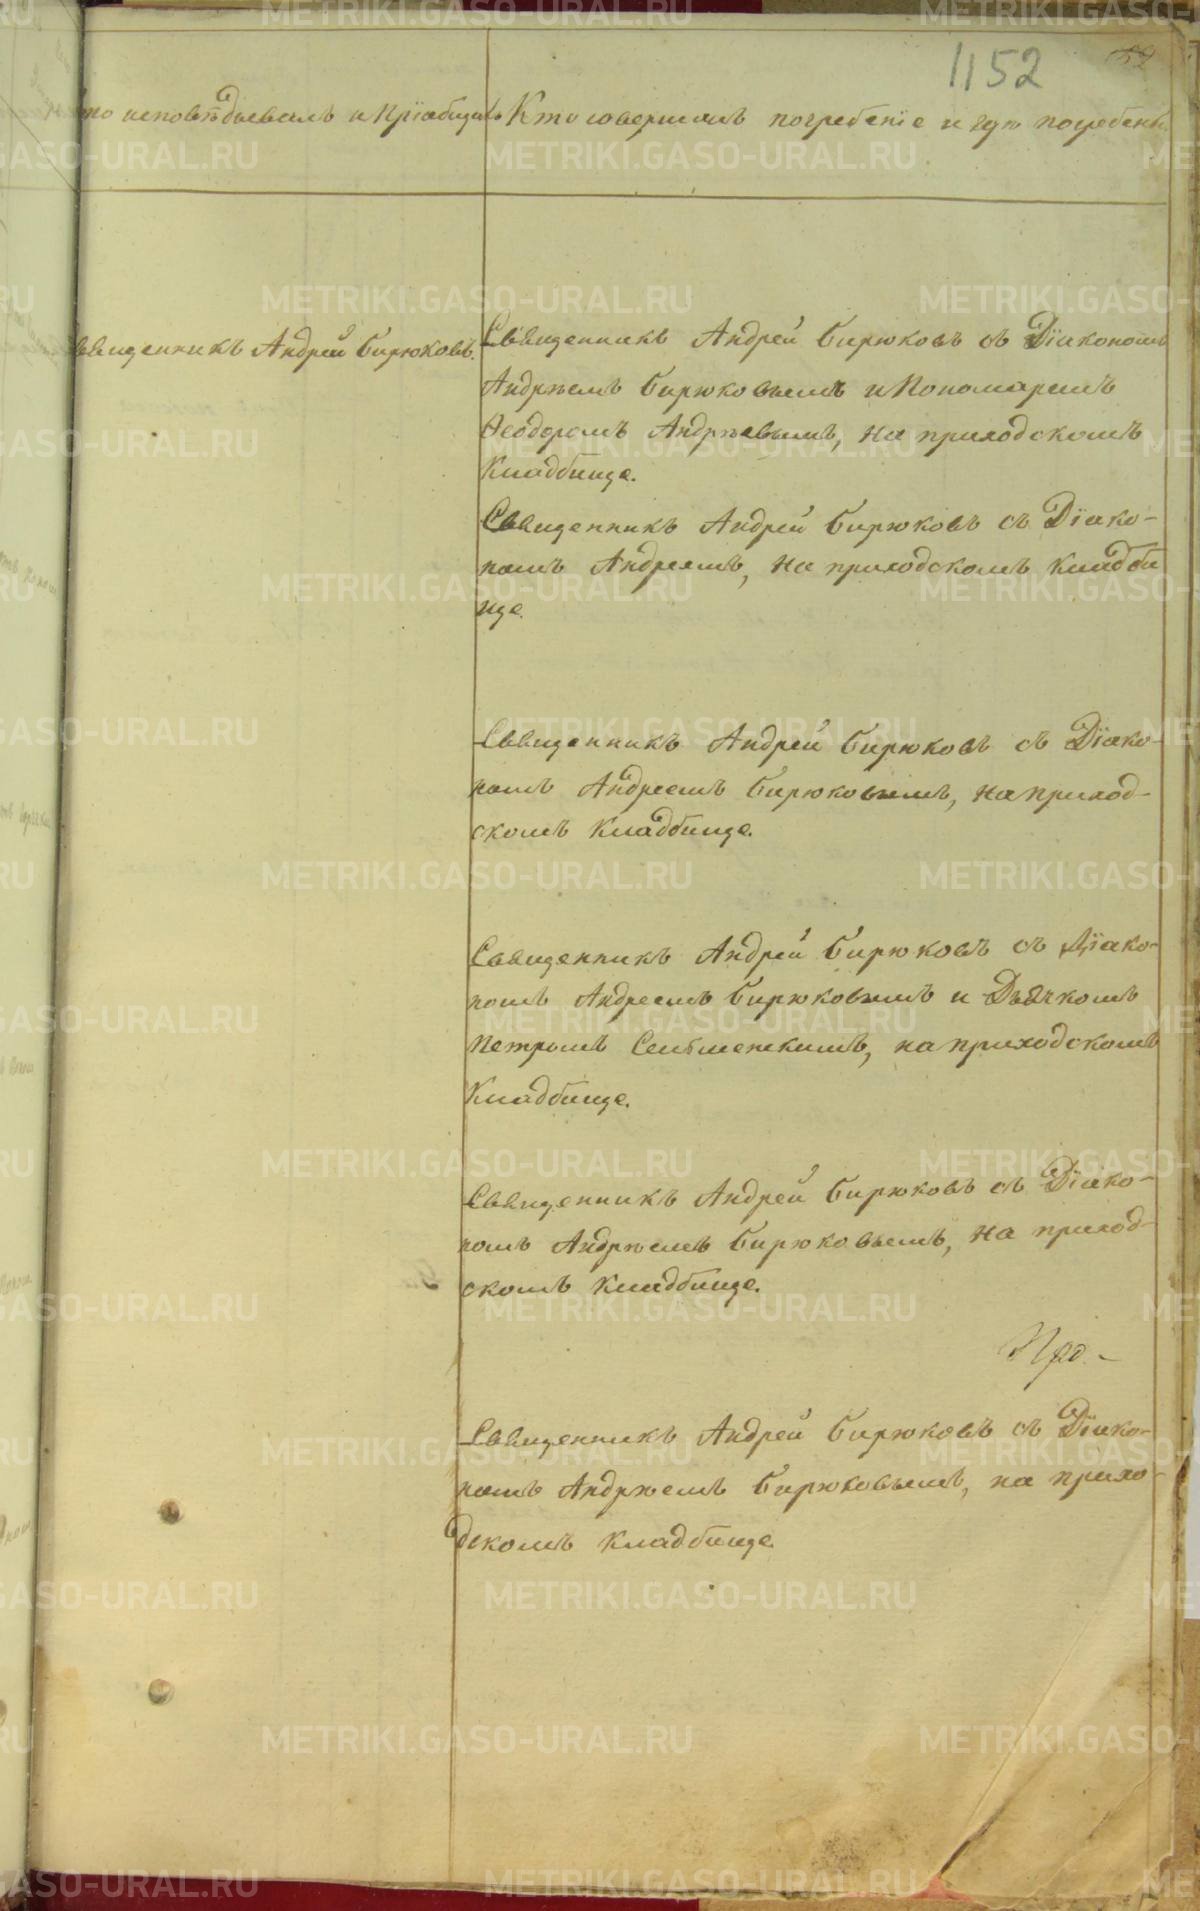 1152
то исповѣдывалъ и пріобщалъ
Кто совершалъ погребеніе и гдѣ погребены
священникъ Андрей Бирюковъ.
Священникъ Андрей Бирюковъ съ Діакономъ
Андрѣемъ Бирюковымъ и Пономаремъ
Ѳеодоромъ Андрѣевымъ, на приходскомъ
Кладбище.
Священникъ Андрей Бирюковъ съ Діако-
номъ Андреемъ, на приходскомъ кладби
ще.
Священникъ Андрей Бирюковъ съ Діако-
номъ Андреемъ Бирюковымъ, на приход-
скомъ Кладбище.
Священникъ Андрей Бирюковъ съ Діако-
номъ Андреемъ Бирюковымъ и Дьячкомъ
Петромъ, на приходскомъ
Кладбище.
Священникъ Андрей Бирюковъ съ Діако-
номъ Андрѣемъ Бирюковымъ, на приход-
скомъ Кладбище.
Священникъ Андрей Бирюковъ съ Діако-
номъ Андрѣемъ Бирюковымъ, на прихо-
дскомъ кладбище.
METRIKI.GASO-URAL.RU